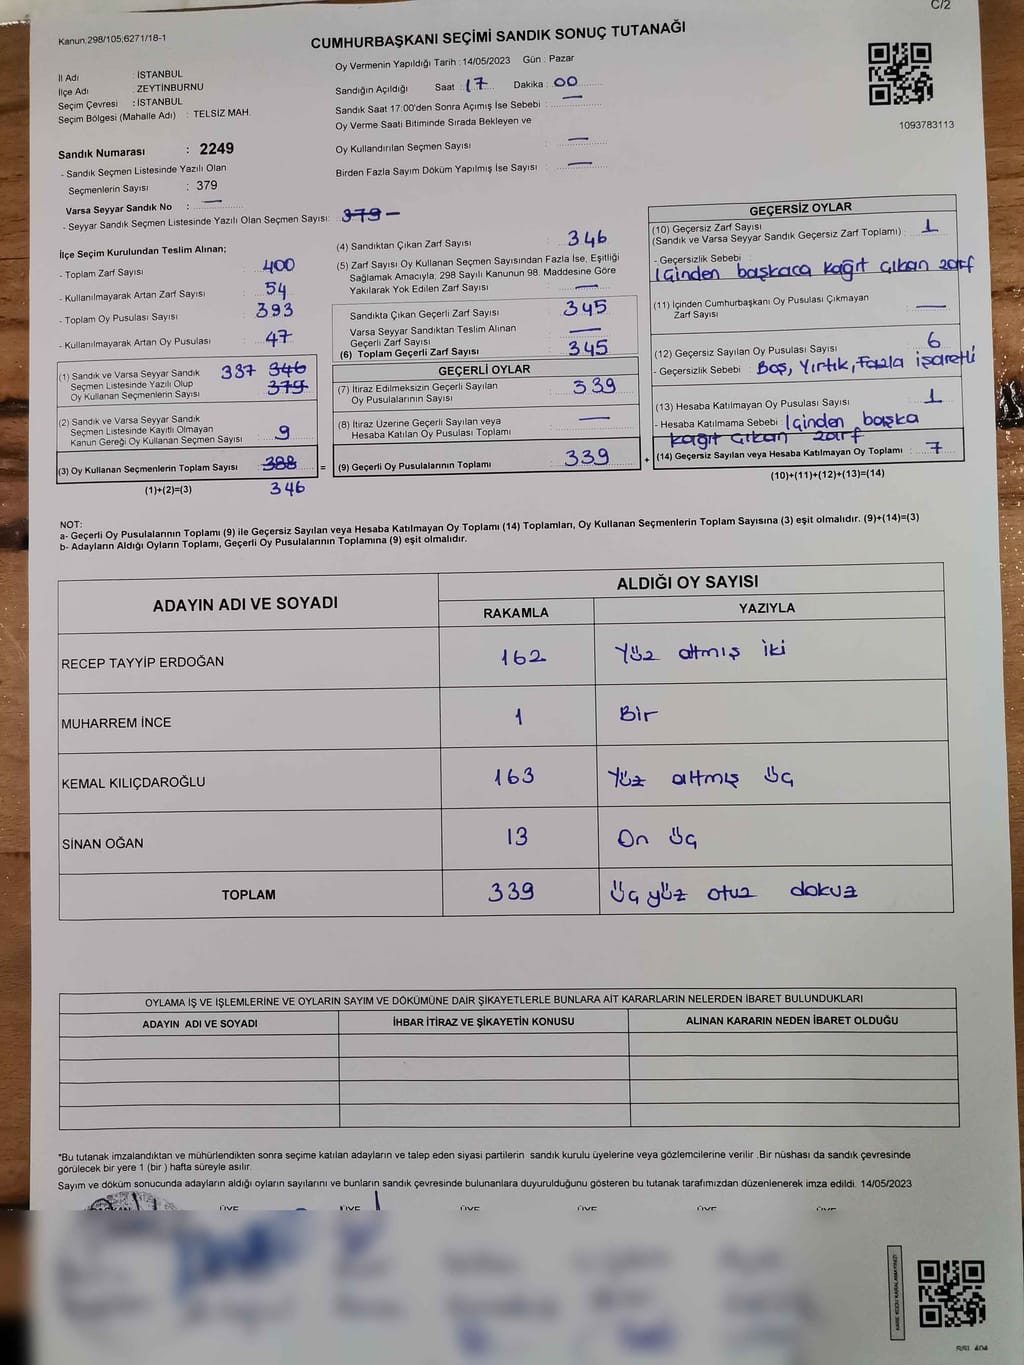 C/2
Kanun:298/105;6271/18-1
CUMHURBAŞKANI SEÇİMİ SANDIK SONUÇ TUTANAĞI
İl Adı : İSTANBUL
İlçe Adı : ZEYTİNBURNU
Seçim Çevresi : İSTANBUL
Seçim Bölgesi (Mahalle Adı) : TELSİZ MAH.
Oy Vermenin Yapıldığı Tarih : 14/05/2023 Gün : Pazar
Sandığın Açıldığı Saat : 17 Dakika : 00
Sandık Saat 17:00'den Sonra Açımış İse Sebebi : —
Oy Verme Saati Bitiminde Sırada Bekleyen ve
Oy Kullandırılan Seçmen Sayısı : —
Birden Fazla Sayım Döküm Yapılmış İse Sayısı : —
1093783113
Sandık Numarası : 2249
- Sandık Seçmen Listesinde Yazılı Olan
Seçmenlerin Sayısı : 379
Varsa Seyyar Sandık No : —
- Seyyar Sandık Seçmen Listesinde Yazılı Olan Seçmen Sayısı: 379 —
İlçe Seçim Kurulundan Teslim Alınan;
- Toplam Zarf Sayısı : 400
- Kullanılmayarak Artan Zarf Sayısı : 54
- Toplam Oy Pusulası Sayısı : 393
- Kullanılmayarak Artan Oy Pusulası : 47
(1) Sandık ve Varsa Seyyar Sandık 337 346
Seçmen Listesinde Yazılı Olup
Oy Kullanan Seçmenlerin Sayısı 379
(2) Sandık ve Varsa Seyyar Sandık
Seçmen Listesinde Kayıtlı Olmayan
Kanun Gereği Oy Kullanan Seçmen Sayısı : 9
(3) Oy Kullanan Seçmenlerin Toplam Sayısı 388 =
(1)+(2)=(3) 346
(4) Sandıktan Çıkan Zarf Sayısı : 346
(5) Zarf Sayısı Oy Kullanan Seçmen Sayısından Fazla İse, Eşitliği
Sağlamak Amacıyla; 298 Sayılı Kanunun 98. Maddesine Göre
Yakılarak Yok Edilen Zarf Sayısı : —
Sandıkta Çıkan Geçerli Zarf Sayısı : 345
Varsa Seyyar Sandıktan Teslim Alınan
Geçerli Zarf Sayısı : —
(6) Toplam Geçerli Zarf Sayısı : 345
GEÇERLİ OYLAR
(7) İtiraz Edilmeksizin Geçerli Sayılan
Oy Pusulalarının Sayısı : 339
(8) İtiraz Üzerine Geçerli Sayılan veya
Hesaba Katılan Oy Pusulası Toplamı : —
(9) Geçerli Oy Pusulalarının Toplamı : 339 +
GEÇERSİZ OYLAR
(10) Geçersiz Zarf Sayısı
(Sandık ve Varsa Seyyar Sandık Geçersiz Zarf Toplamı) : 1
- Geçersizlik Sebebi :
İçinden başkaca kağıt çıkan zarf
(11) İçinden Cumhurbaşkanı Oy Pusulası Çıkmayan
Zarf Sayısı : —
(12) Geçersiz Sayılan Oy Pusulası Sayısı : 6
- Geçersizlik Sebebi : Boş, Yırtık, Fazla işaretli
(13) Hesaba Katılmayan Oy Pusulası Sayısı : 1
- Hesaba Katılmama Sebebi : İçinden başka
kağıt çıkan zarf
(14) Geçersiz Sayılan veya Hesaba Katılmayan Oy Toplamı : 7
(10)+(11)+(12)+(13)=(14)
NOT:
a- Geçerli Oy Pusulalarının Toplamı (9) ile Geçersiz Sayılan veya Hesaba Katılmayan Oy Toplamı (14) Toplamları, Oy Kullanan Seçmenlerin Toplam Sayısına (3) eşit olmalıdır. (9)+(14)=(3)
b- Adayların Aldığı Oyların Toplamı, Geçerli Oy Pusulalarının Toplamına (9) eşit olmalıdır.
ADAYIN ADI VE SOYADI
ALDIĞI OY SAYISI
RAKAMLA YAZIYLA
RECEP TAYYİP ERDOĞAN 162 Yüz altmış iki
MUHARREM İNCE 1 Bir
KEMAL KILIÇDAROĞLU 163 Yüz altmış üç
SİNAN OĞAN 13 On üç
TOPLAM 339 Üç yüz otuz dokuz
OYLAMA İŞ VE İŞLEMLERİNE VE OYLARIN SAYIM VE DÖKÜMÜNE DAİR ŞİKAYETLERLE BUNLARA AİT KARARLARIN NELERDEN İBARET BULUNDUKLARI
ADAYIN ADI VE SOYADI İHBAR İTİRAZ VE ŞİKAYETİN KONUSU ALINAN KARARIN NEDEN İBARET OLDUĞU
*Bu tutanak imzalandıktan ve mühürlendikten sonra seçime katılan adayların ve talep eden siyasi partilerin sandık kurulu üyelerine veya gözlemcilerine verilir .Bir nüshası da sandık çevresinde
görülecek bir yere 1 (bir ) hafta süreyle asılır.
Sayım ve döküm sonucunda adayların aldığı oyların sayılarını ve bunların sandık çevresinde bulunanlara duyurulduğunu gösteren bu tutanak tarafımızdan düzenlenerek imza edildi. 14/05/2023
ÜYE ÜYE ÜYE ÜYE ÜYE ÜYE